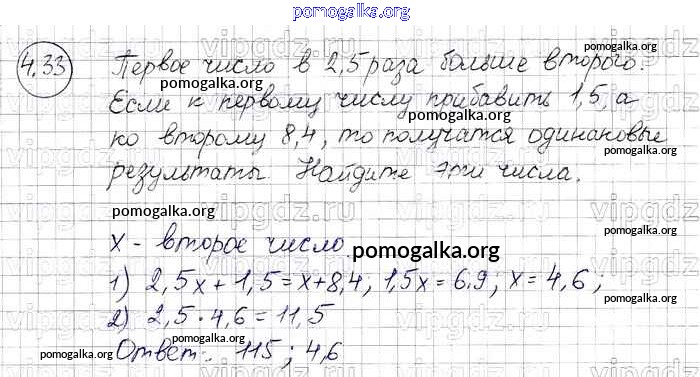 pomogalka.org
4.33 Первое число в 2,5 раза больше второго.
pomogalka.org
pomogalka.org
Если к первому числу прибавить 1,5, а
pomogalka.org
ко второму 8,4, то получатся одинаковые
pomogalka.org
результаты. Найдите эти числа.
pomogalka.org
pomogalka.org
x - второе число.
pomogalka.org
1) 2,5x + 1,5 = x + 8,4; 1,5x = 6,9; x = 4,6;
pomogalka.org
2) 2,5 · 4,6 = 11,5
pomogalka.org
Ответ: 115; 4,6
pomogalka.org
pomogalka.org
vipgdz.ru